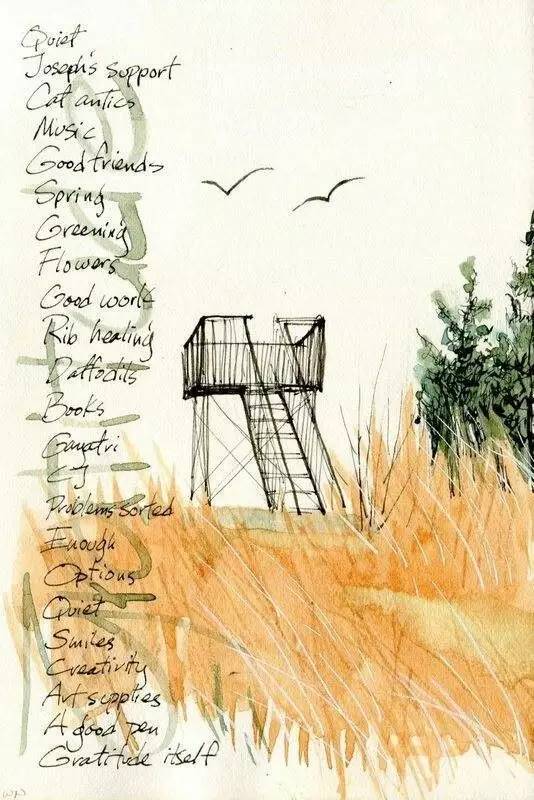 Quiet
Joseph's support
Cat antics
Music
Good friends
Spring
Greening
Flowers
Good work
Rib healing
Daffodils
Books
CJ
Problems sorted
Enough
Options
Quiet
Smiles
Creativity
Art supplies
A good pen
Gratitude itself